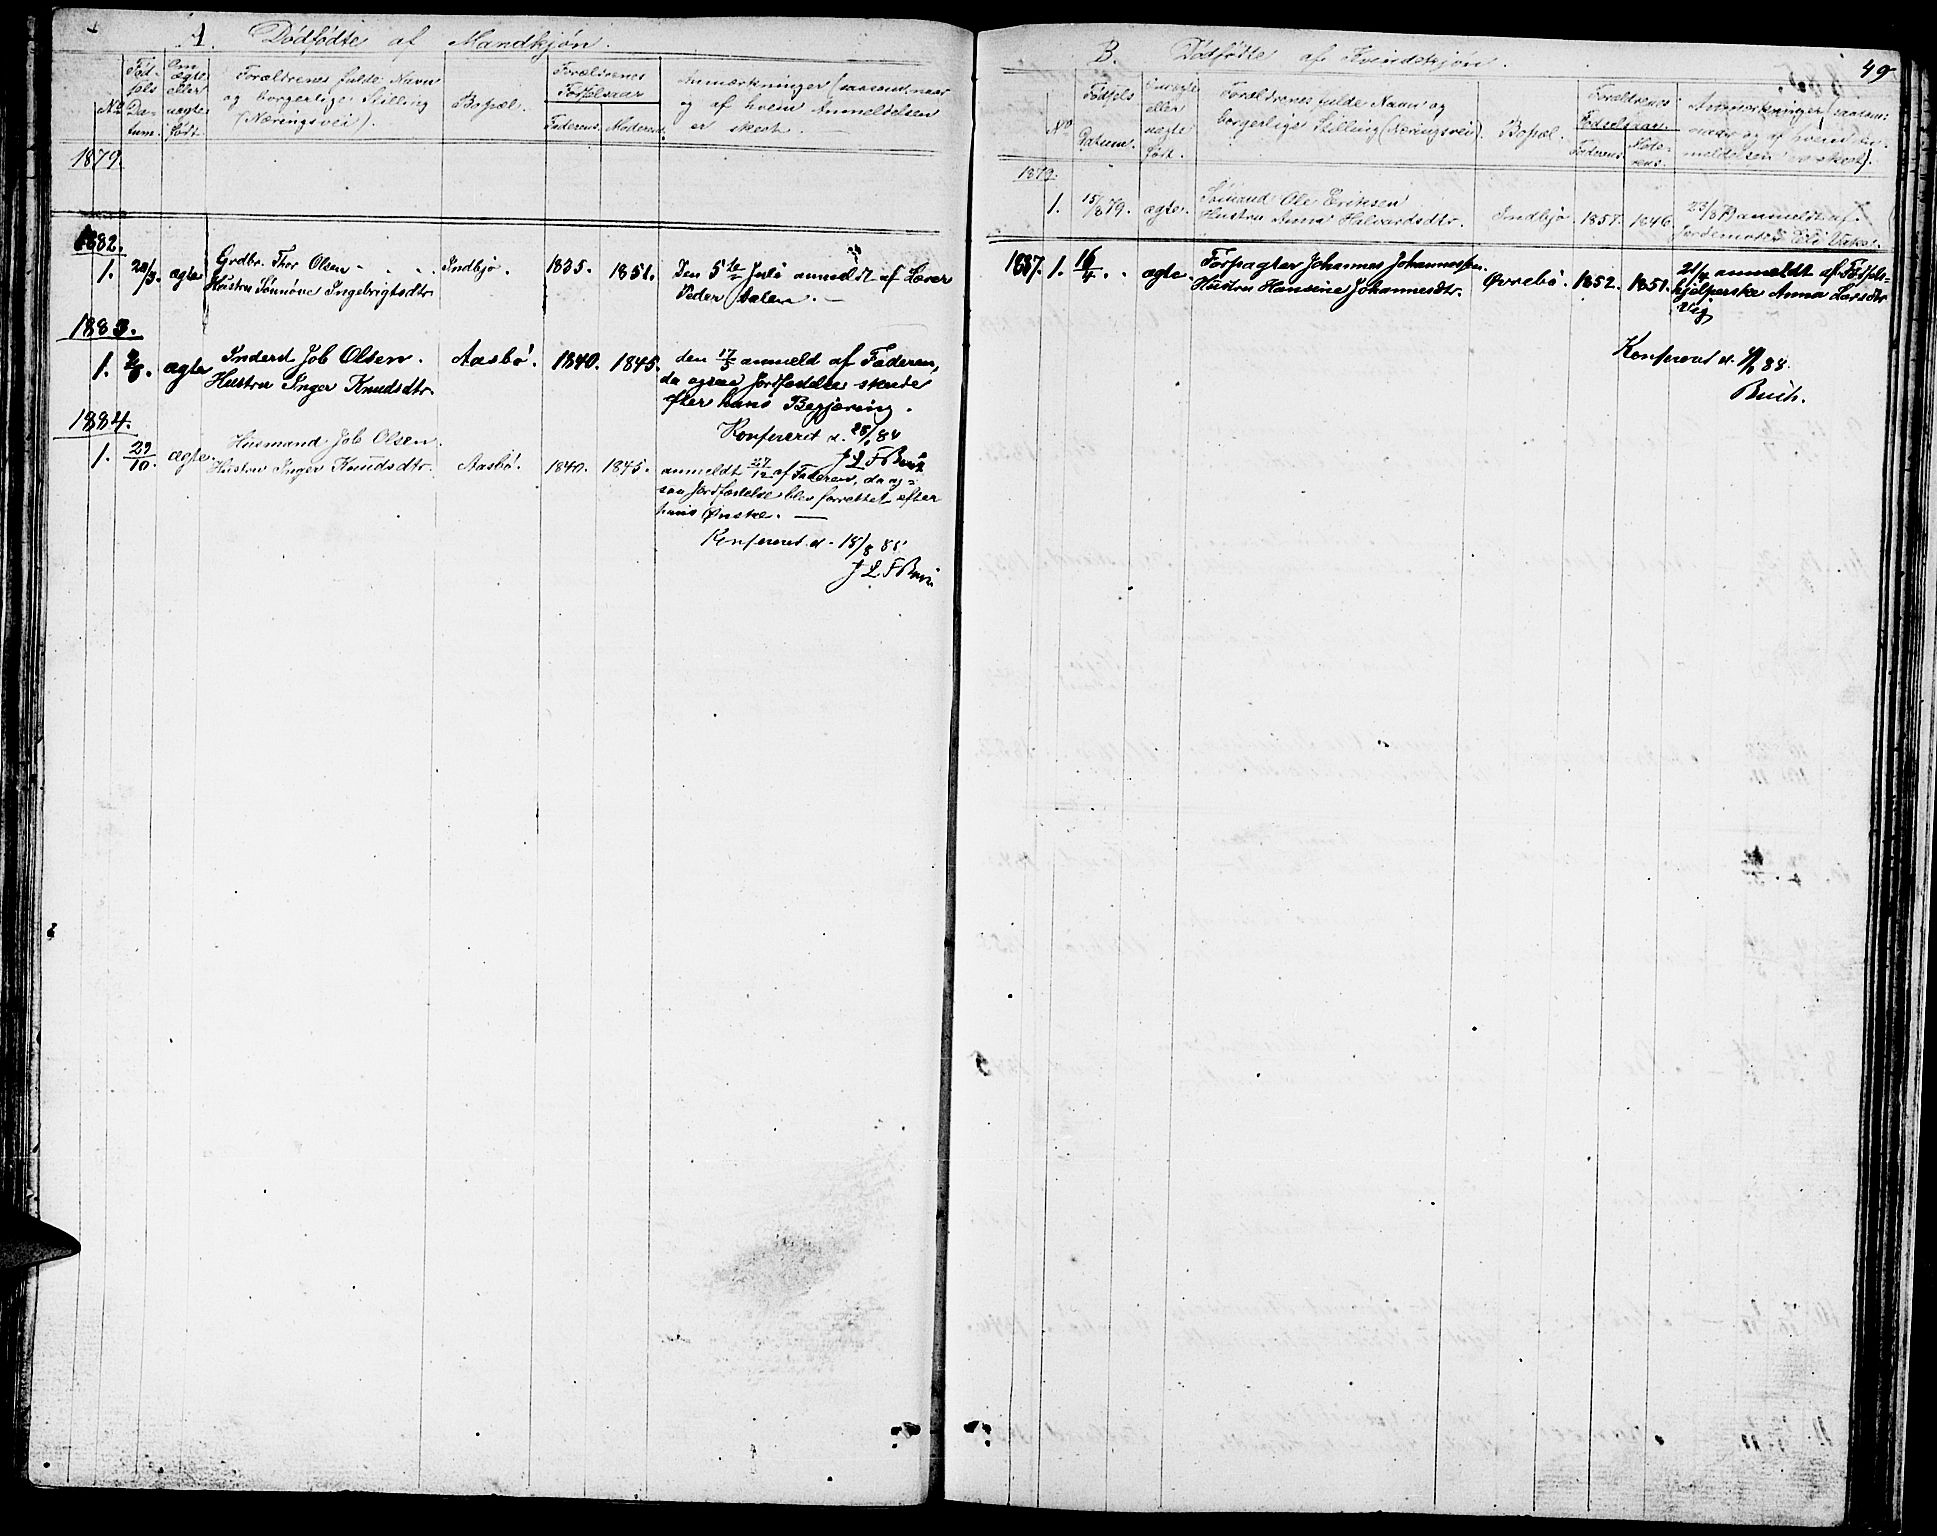 A. Dødfødte af Mandkjøn.
No
Fød-
sels
Da-
tum.
Om
ægte
eller
uægte
født.
Forældrenes fulde Navn
og borgerlige Stilling
(Næringsvei).
Bopæl.
Forældrenes
Fødselsaar
Faderens. Moderens.
Anmærkninger (saasom, naar
og af hvem Anmeldelsen
er skeet.
1879.
1882.
1. ægte Grdbr. Thor Olsen Indbjo. 1835. 1851. Den 5te Juli anmeldt af Lærer
Hustru Sønnøve Ingebrigtsdtr. Peder
1883.
1. ægte Inderst Job Olsen. Aasbø. 1840. 1845. den 17/5 anmeld af Faderen,
Hustru Inger Knudsdtr. da ogsaa Jordfæstelse skede
efter hans Begjæring.
Konfereret d. 84
J L F Buch
1884.
1. 29/10. ægte. Husmand Job Olsen. Aasbø. 1840. 1845.
Hustru Inger Knudsdtr. anmeldt 27/12 af Faderen, da og=
saa Jordfæstelse blev forrettet efter
hans Ønske.
Konfereret d. 18/8 85
J L F Buch
49
B. Dødfødte af Kvindekjøn.
No
Fødsels
Datum.
Om ægte
eller
uægte
født.
Forældrenes fulde Navn og
borgerlige Stilling (Næringsvei).
Bopæl.
Forældrenes
Fødselsaar.
Faderens Mode-
rens.
Anmærkninger (saasom:
naar og af hvem An-
meldelsen er skeet).
1879.
1. 15/8 79. ægte. Sømand Ole Eriksen
Hustru Anna Halvardsdtr. Indbjo. 1857. 1846. 23/8 79 anmeldt af
Jordemoder
1887. 1. 16/4. ægte. Forpagter Johannes Johannessen Øvrebø. 1852. 1851. 21/4 anmeldt af Fødsels=
Hustru Hansine Johannesdtr. hjælperske Anna Larsdtr
Konfereret d. 88.
Buch.